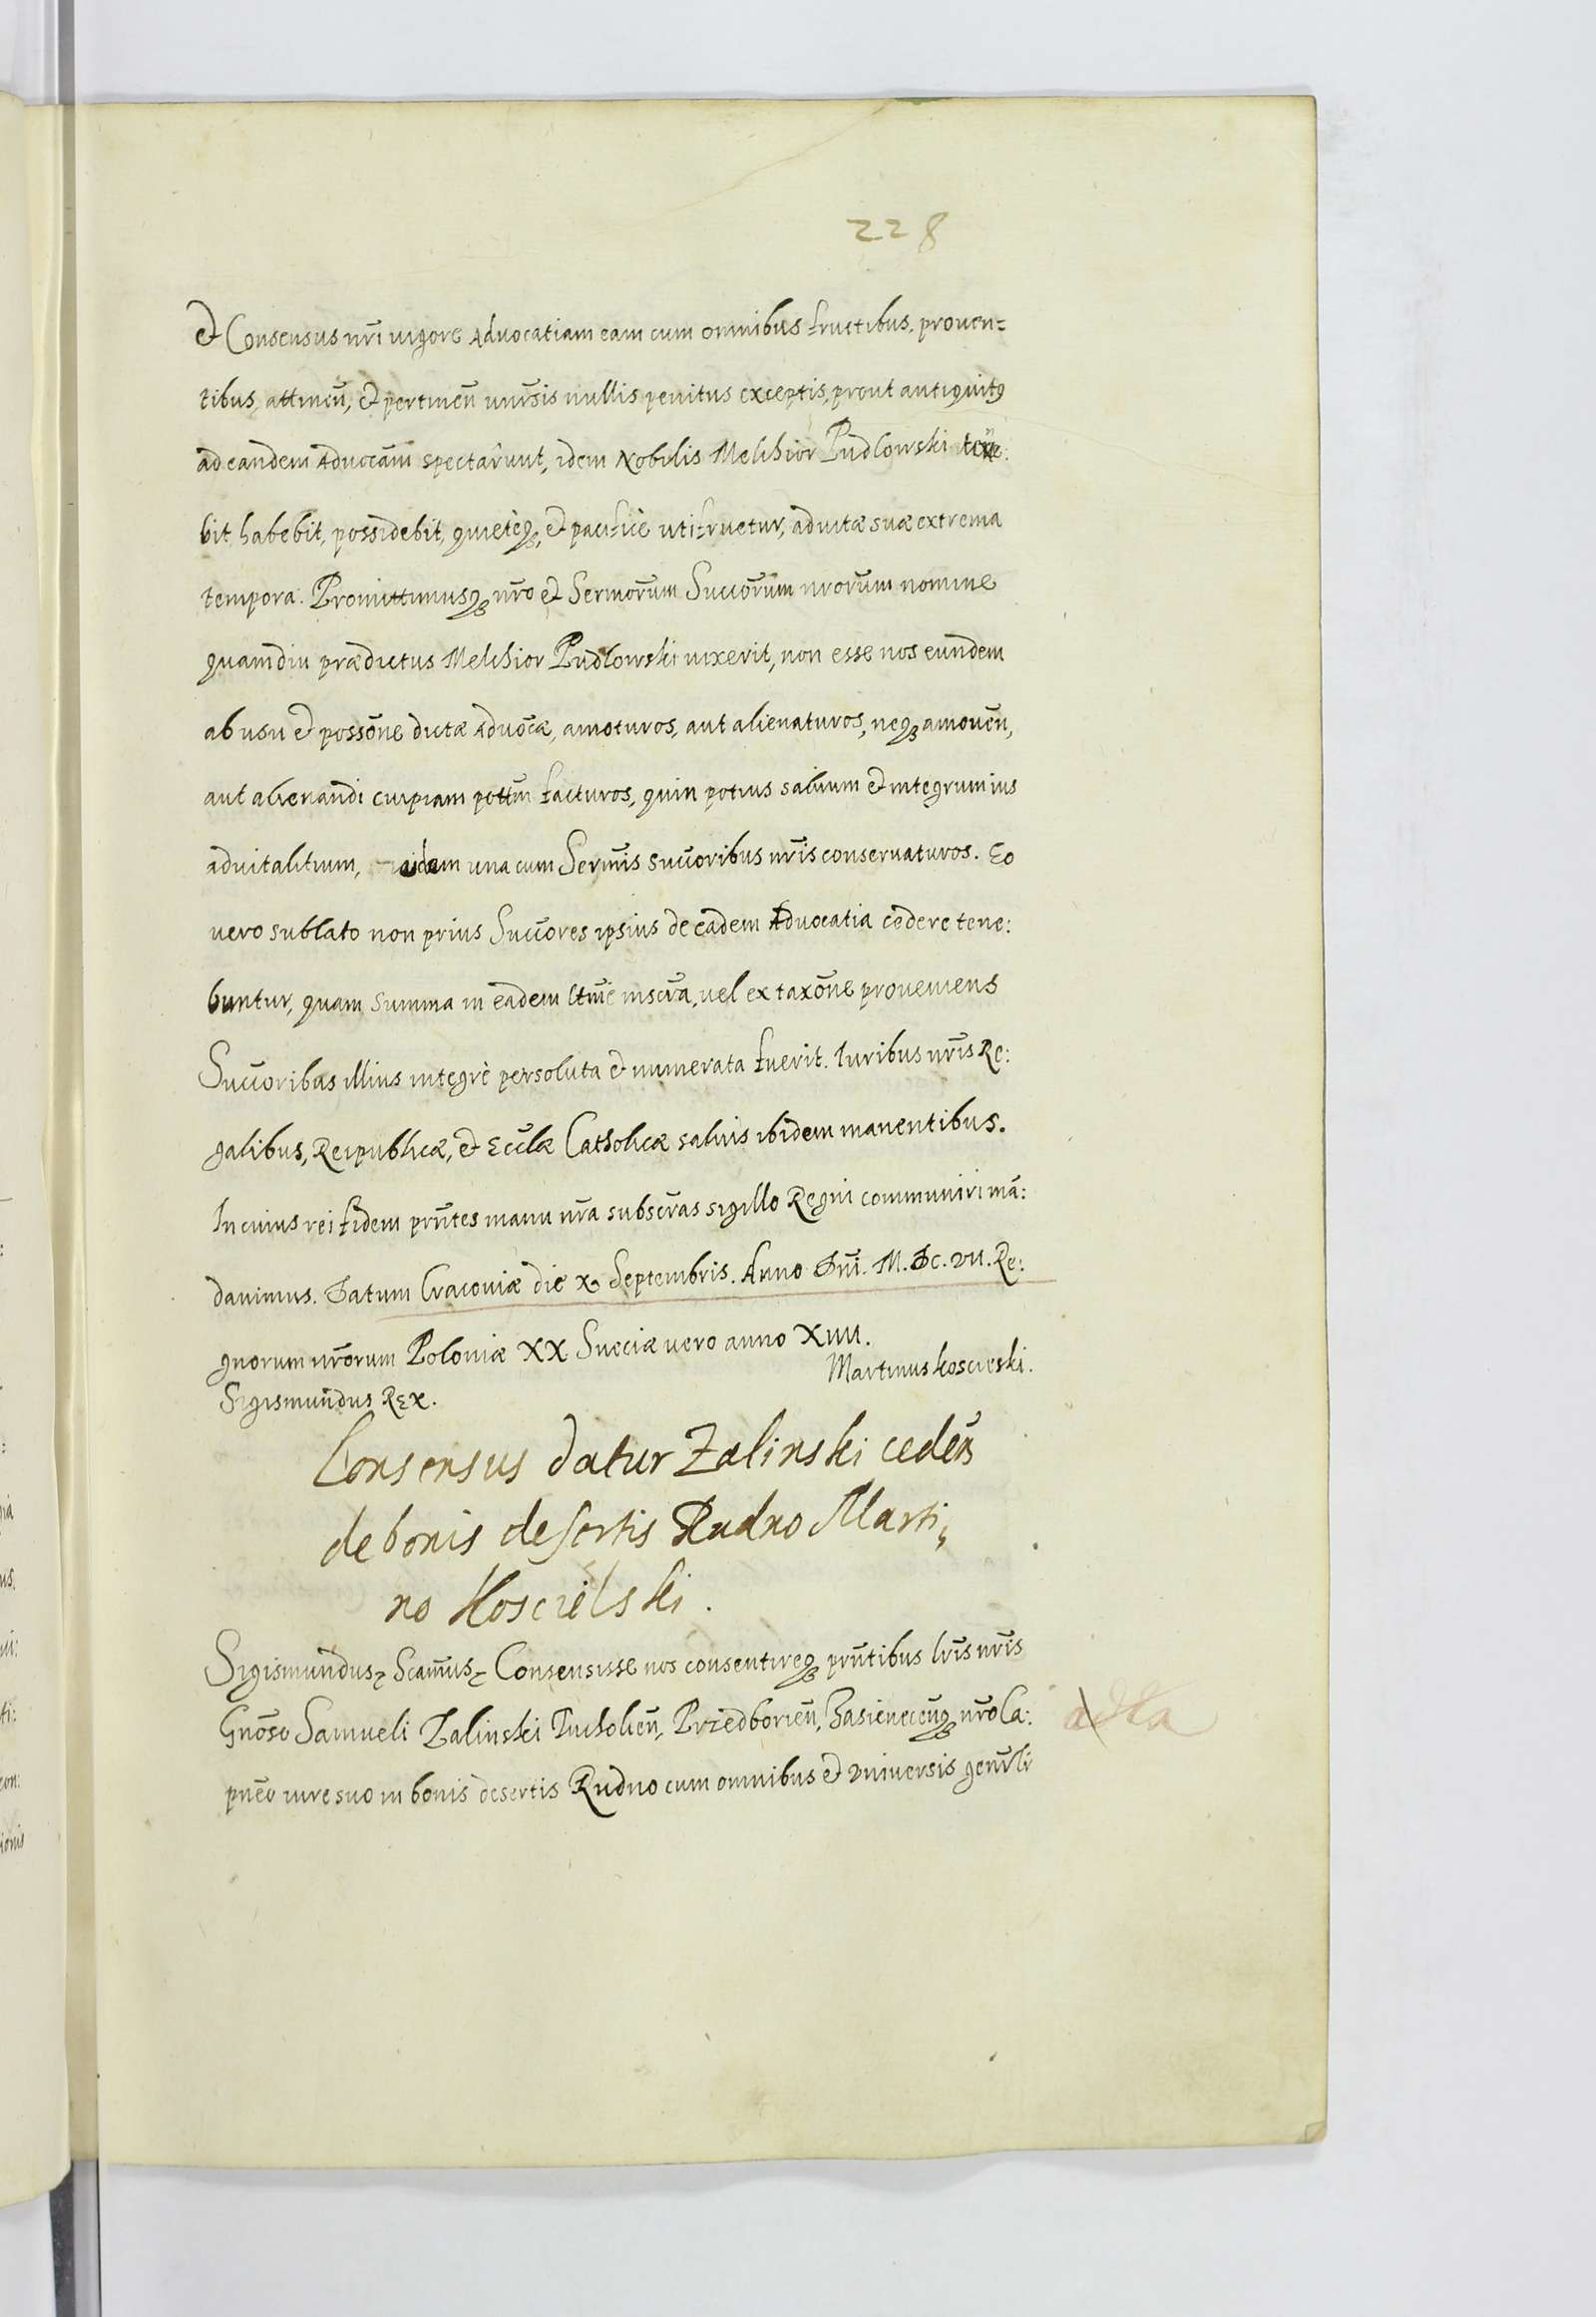 228
et Consensus nri̅ uigore Aduocatiam eam cum omnibus fructibus, prouen=
tibus, attinen̅, et pertinen̅ unr̅sis nullis penitus exceptis, prout antiquitꝯ
ad eandem Aduocām spectarunt, idem Nobilis Melchior Pudlowski tene:
bit habebit, possidebit, quietèqꝫ, et pacificè utifruetur, ad uitæ suæ extrema
tempora. Promittimusqꝫ nr̅o et Sermorum̅ Succorum̅ nrorum̅ nomine
quamdiu prædictus Melchior Pudlowski uixerit, non esse nos eundem
ab usu et posso̅ne dictæ Aduo̅cæ, amoturos, aut alienaturos, neqꝫ amouen̅,
aut alienandi cuipiam pottm̅ facturos, quin potius saluum et integrum ius
aduitalitium, eidem una cum Serm̅is succ̅oribus nr̅is conseruaturos. Eo
uero sublato non prius Succ̅ores ipsius de eadem Aduocatia cedere tene:
buntur, quam summa in eadem ltm̅e inscr̅a, uel ex taxo̅ne proueniens
Succ̅oribus illius integrè persoluta et numerata fuerit. Iuribus nr̅is Re:
galibus, Reipublicæ, et Eccl̅æ Catholicæ saluis ibidem manentibus.
In cuius rei fidem prn̅tes manu nr̅a subscr̅as sigillo Regni communiri ma̅:
dauimus. Datum Cracouiæ die X Septembris. Anno Dn̅i. M. DC. VII. Re:
gnorum nr̅orum Poloniæ XX Sueciæ uero anno XIIII.
Martinus Koscieski.
Sigismundus Rex.
Consensus datur Zalinski ceden̅
de bonis desertis Rudno Marti,
no Koscielski.
Sigismundus, Scam̅us, Consensisse nos consentireqꝫ prn̅tibus lr̅is nr̅is
Gno̅so Samueli Zalinski Tucholien̅, Przedborien̅, Basienecen̅qꝫ nr̅o Ca:
pne̅o iure suo in bonis desertis Rudno cum omnibus et uniuersis genr̅li